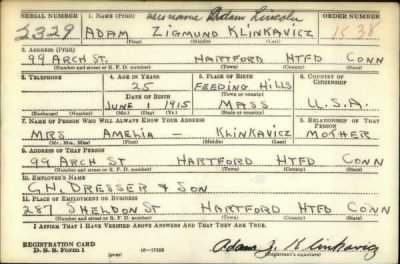 SERIAL NUMBER 1. NAME (Print) uses name Adam Lincoln ORDER NUMBER
2329 ADAM ZIGMUND KLINKAVICZ 1538
(First) (Middle) (Last)
2. ADDRESS (Print)
99 ARCH ST. HARTFORD HTFD CONN
(Number and street or R. F. D. number) (Town) (County) (State)
3. TELEPHONE 4. AGE IN YEARS 5. PLACE OF BIRTH 6. COUNTRY OF CITIZENSHIP
25 FEEDING HILLS
DATE OF BIRTH (Town or county)
JUNE 1 1915 MASS U.S.A.
(Exchange) (Number) (Mo.) (Day) (Yr.) (State or country)
7. NAME OF PERSON WHO WILL ALWAYS KNOW YOUR ADDRESS 8. RELATIONSHIP OF THAT PERSON
MRS AMELIA — KLINKAVICZ MOTHER
(Mr., Mrs., Miss) (First) (Middle) (Last)
9. ADDRESS OF THAT PERSON
99 ARCH ST HARTFORD HTFD CONN
(Number and street or R. F. D. number) (Town) (County) (State)
10. EMPLOYER'S NAME
G.H. DRESSER & SON
11. PLACE OF EMPLOYMENT OR BUSINESS
287 SHELDON ST HARTFORD HTFD CONN
(Number and street or R. F. D. number) (Town) (County) (State)
I AFFIRM THAT I HAVE VERIFIED ABOVE ANSWERS AND THAT THEY ARE TRUE.
REGISTRATION CARD
D. S. S. Form 1 (over) 16—17105 Adam Z. Klinkavicz